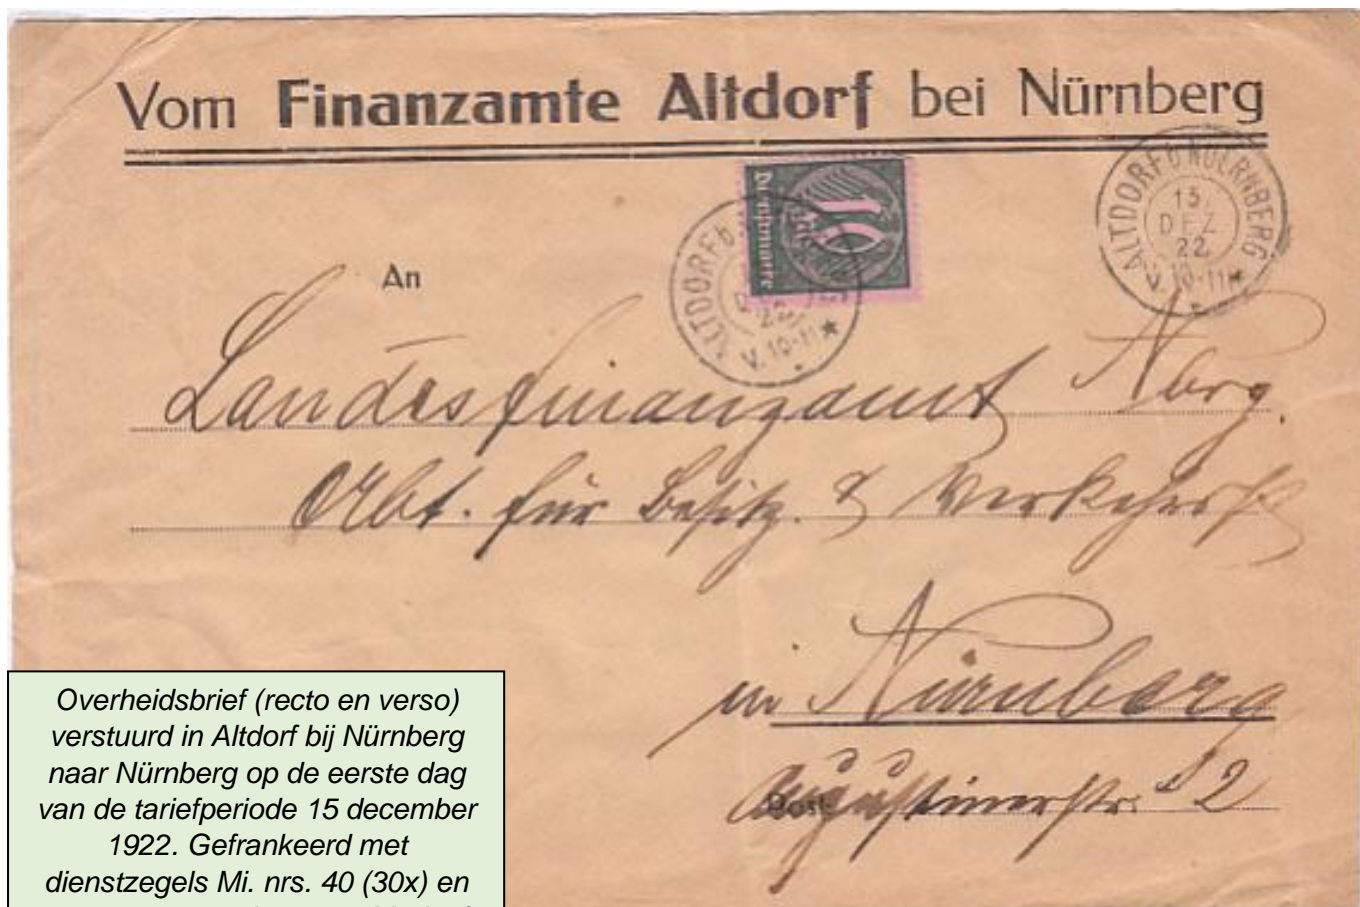 Vom Finanzamte Altdorf bei Nürnberg
Dienstmarke
10
ALTDORF b.
22
V. 10-11
ALTDORF b NUERNBERG
15.
DEZ
22
V. 10-11
An
Landesfinanzamt Nbrg.
Abt. für Besitz- & Verkehrs
in Nürnberg
Augustinerstr. 2
Overheidsbrief (recto en verso)
verstuurd in Altdorf bij Nürnberg
naar Nürnberg op de eerste dag
van de tariefperiode 15 december
1922. Gefrankeerd met
dienstzegels Mi. nrs. 40 (30x) en